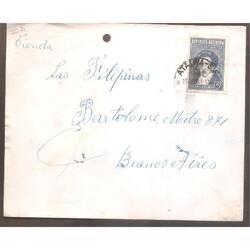 Tienda
Las Filipinas
Bartolomé Mitre 871
Buenos Aires
REPUBLICA ARGENTINA